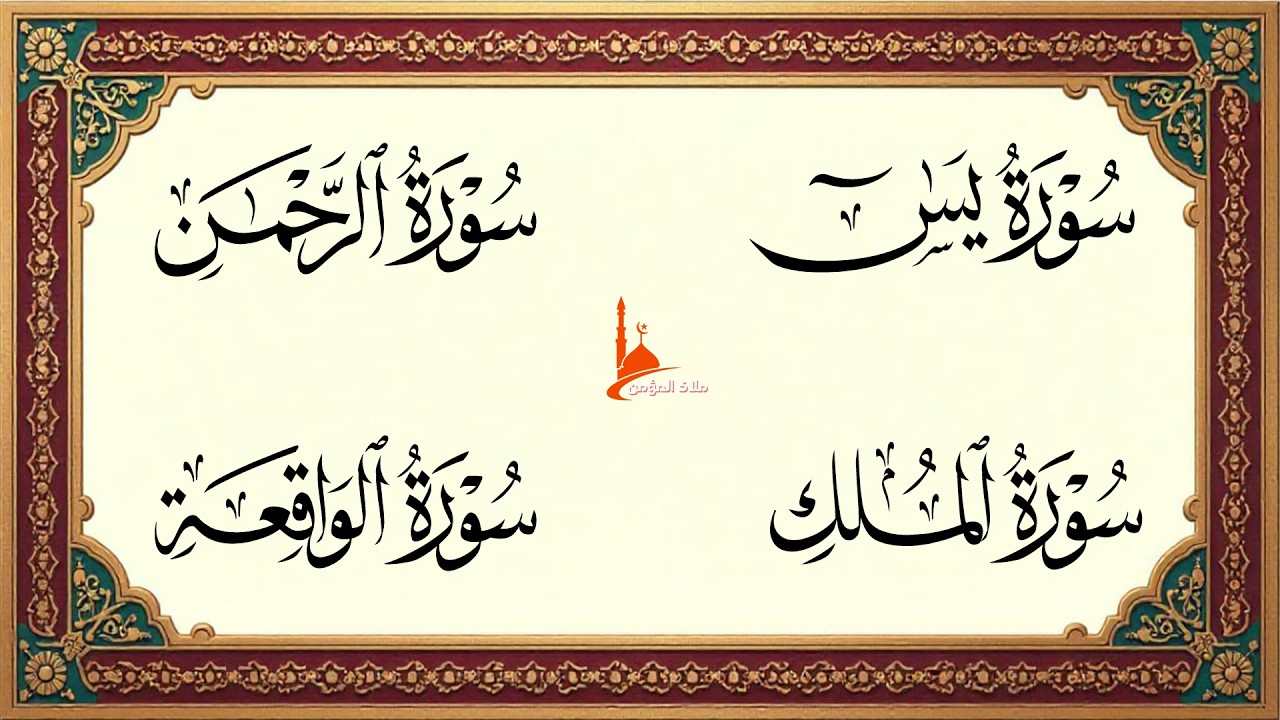 سُوْرَةُ يَسٓ
سُوْرَةُ ٱلرَّحْمَٰنِ
ملاذ المؤمن
سُوْرَةُ ٱلمُلكِ
سُوْرَةُ ٱلوَاقِعَةِ